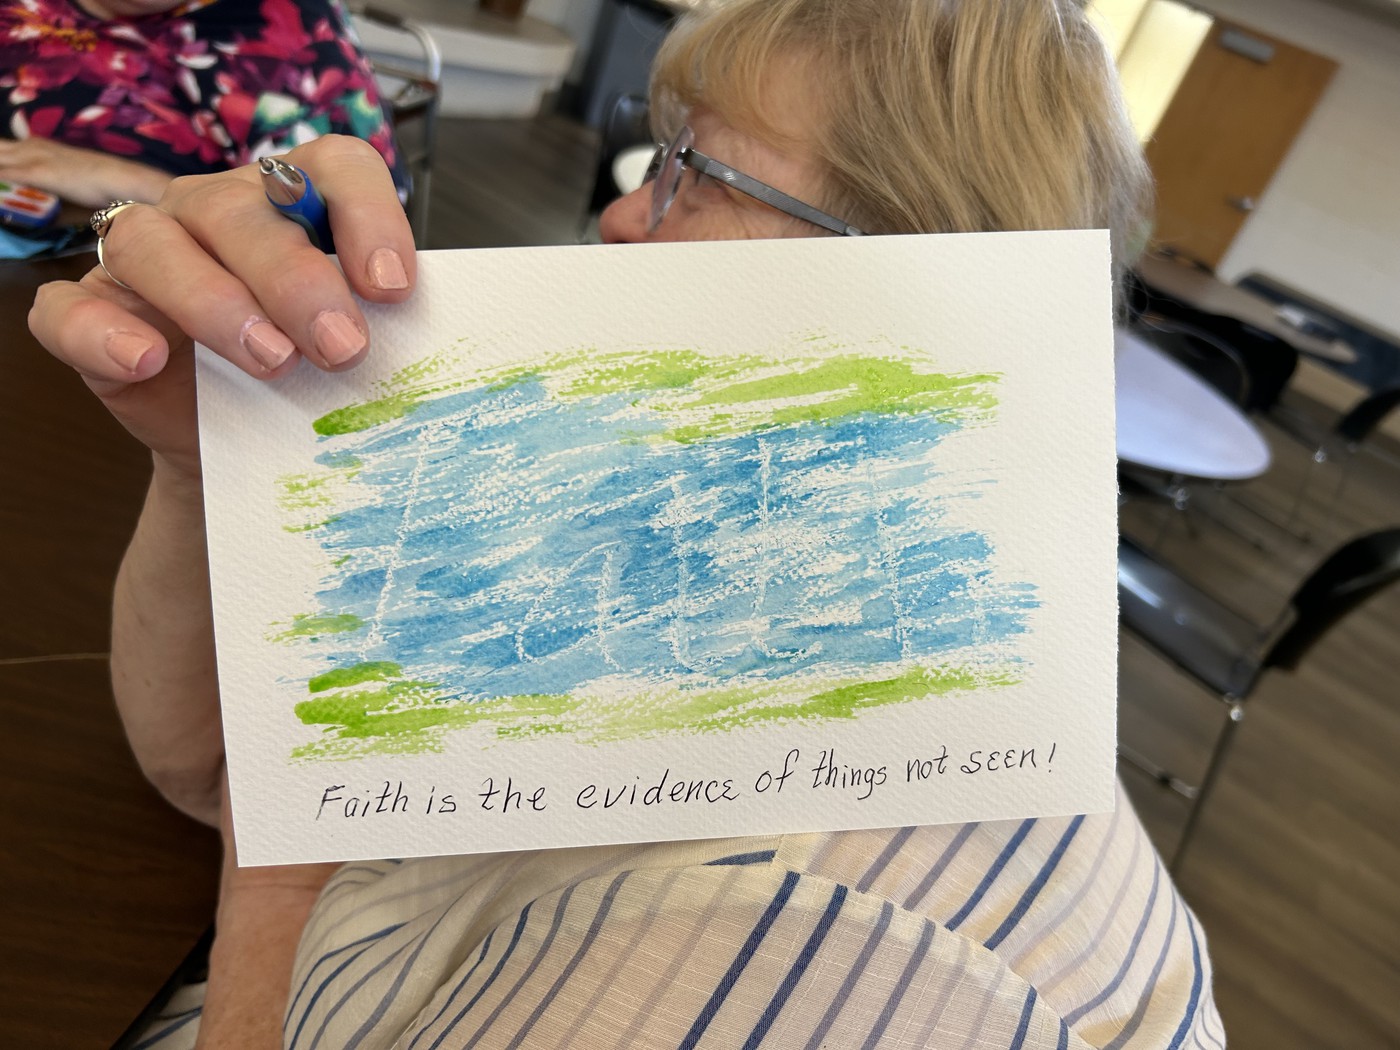 Faith
Faith is the evidence of things not seen!